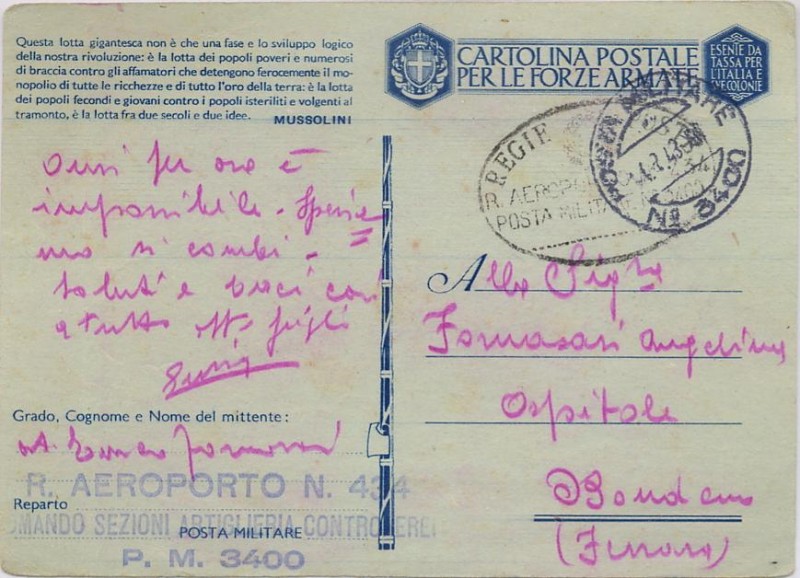 Questa lotta gigantesca non è che una fase e lo sviluppo logico
della nostra rivoluzione: è la lotta dei popoli poveri e numerosi
di braccia contro gli affamatori che detengono ferocemente il mo-
nopolio di tutte le ricchezze e di tutto l'oro della terra: è la lotta
dei popoli fecondi e giovani contro i popoli isteriliti e volgenti al
tramonto, è la lotta fra due secoli e due idee.
MUSSOLINI
CARTOLINA POSTALE
PER LE FORZE ARMATE
ESENTE DA
TASSA PER
L'ITALIA E
LE COLONIE
POSTA MILITARE
N. 3400
REGIE
R. AEROPO
POSTA MILITARE N. 3400
per ora è
impossibile - Sperie
mo si cambi -
Saluti e baci
a tutti figli
Alla Sig.ra
Fornasari Angelina
Ospitale
Bondeno
(Ferrara)
Grado, Cognome e Nome del mittente:
R. AEROPORTO N. 434
Reparto
OMANDO SEZIONI ARTIGLIERIA CONTROEREI
POSTA MILITARE
P. M. 3400